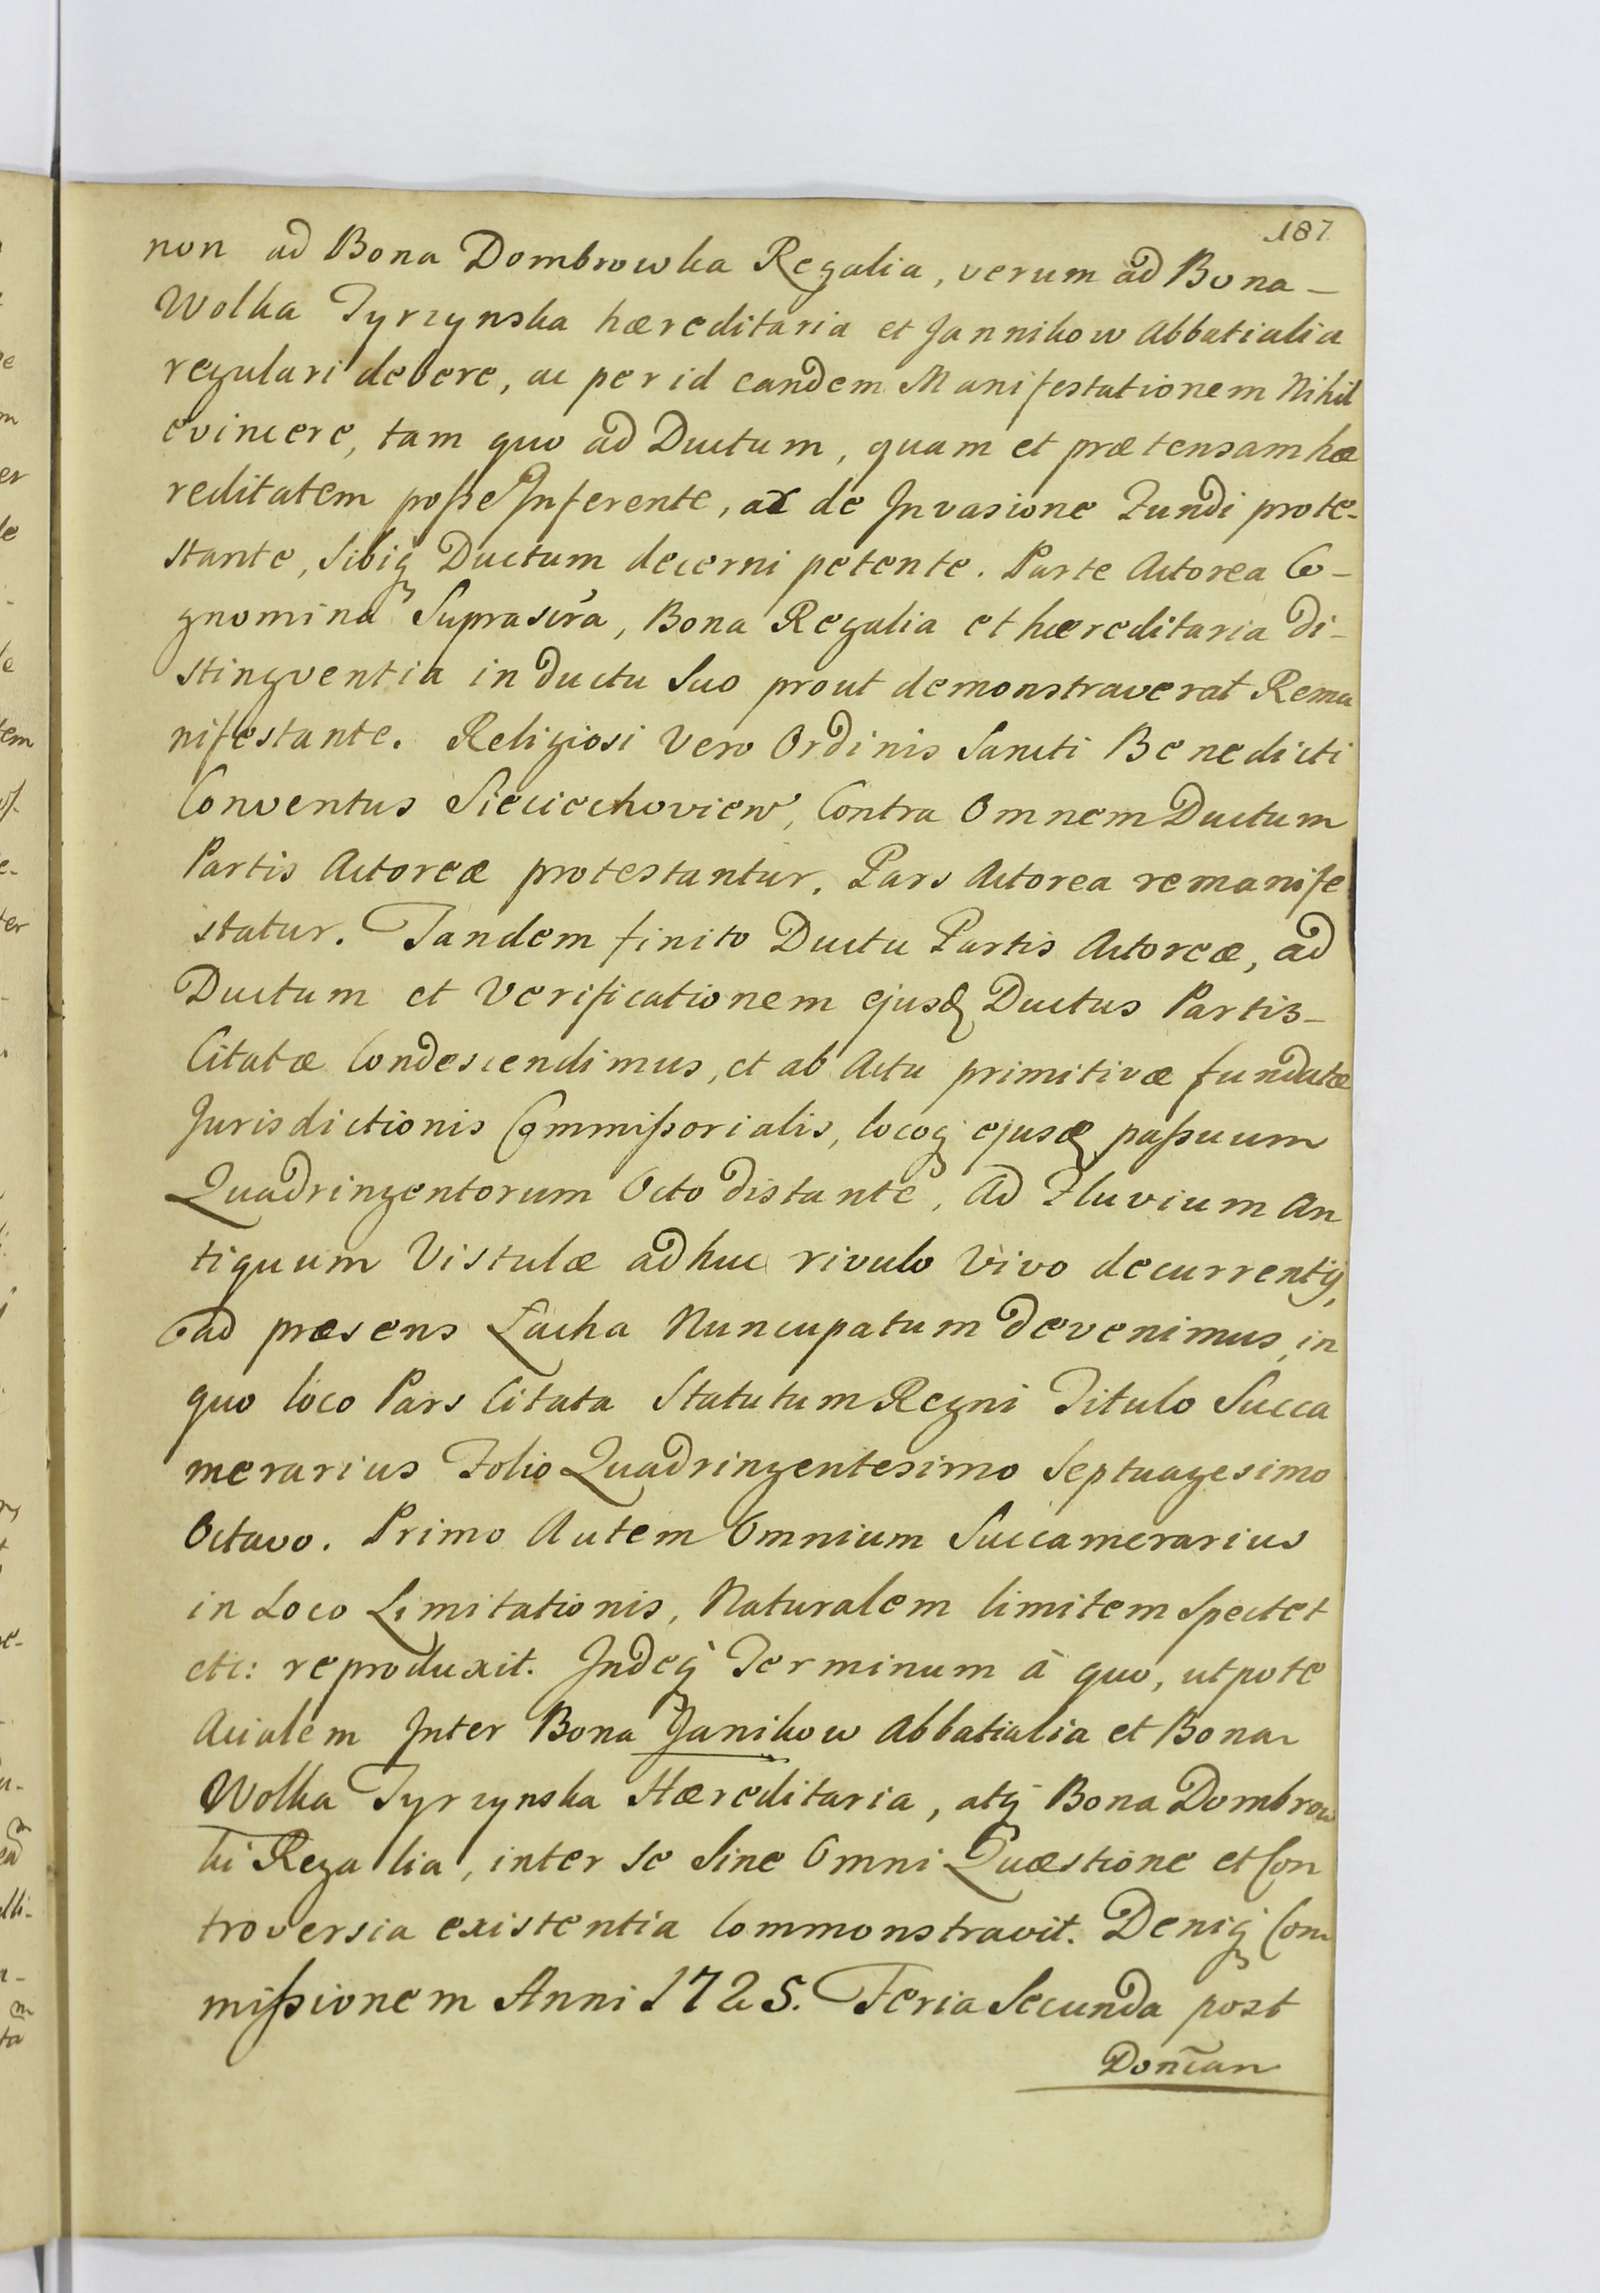 187
non ad Bona Dombrowka Regalia, verum ad Bona –
Wolka Tyrzynska hæreditaria et Jannikow Abbatialia
regulari debere, ac per id eandem Manifestationem Nihil
evincere, tam quo ad Ductum, quam et prætensam hæ
reditatem poße Inferente, ac de Invasione Fundi prote-
stante, Sibiq Ductum decerni petente. Parte Actorea Co –
gnomina Suprascra, Bona Regalia et hæreditaria di –
stingventia in ductu Suo prout demonstraverat Rema
nifestante. Religiosi Vero Ordinis Sancti Benedicti
Conventus Sieciechoview, Contra Omnem Ductum
Partis Actoreæ protestantur. Pars Actorea remanife
statur. Tandem finito Ductu Partis Actoreæ, ad
Ductum et Verificationem ejusd Ductus Partis –
Citatæ Condescendimus, et ab Actu primitivæ fundatæ
Jurisdictionis Commißorialis, locoq ejusd paßuum
Quadringentorum Octo distante, Ad Fluvium An
tiquum Vistulæ adhuc rivulo Vivo decurrentij,
ad præsens Łacha Nuncupatum devenimus, in
quo loco Pars Citata Statutum Regni Titulo Succa
merarius Folio Quadringentesimo Septuagesimo
Octavo. Primo Autem Omnium Succamerarius
in Loco Limitationis, Naturalem limitem Spectet
etc: reproduxit. Indeq Terminum à quo, utpote
Acialem Inter Bona Janikow Abbatialia et Bona
Wolka Tyrzynska Hæreditaria, atq Bona Dombrow
ki Regalia, inter se Sine Omni Quæstione et Con
troversia existentia Commonstravit. Deniq Com
mißionem Anni 1725. Feria Secunda post
Doncan